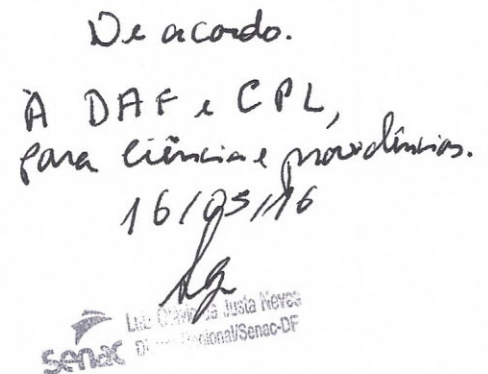 De acordo.
À DAF e CPL,
para ciência e providências.
16/05/16
Luiz Otávio da Justa Neves
Diretor Regional/Senac-DF
senac